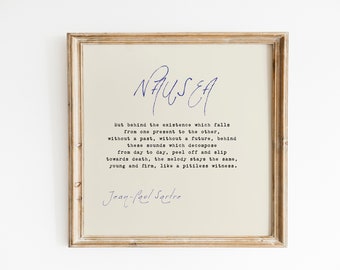 NAUSEA
But behind the existence which falls
from one present to the other,
without a past, without a future, behind
these sounds which decompose
from day to day, peel off and slip
towards death, the melody stays the same,
young and firm, like a pitiless witness.
Jean-Paul Sartre